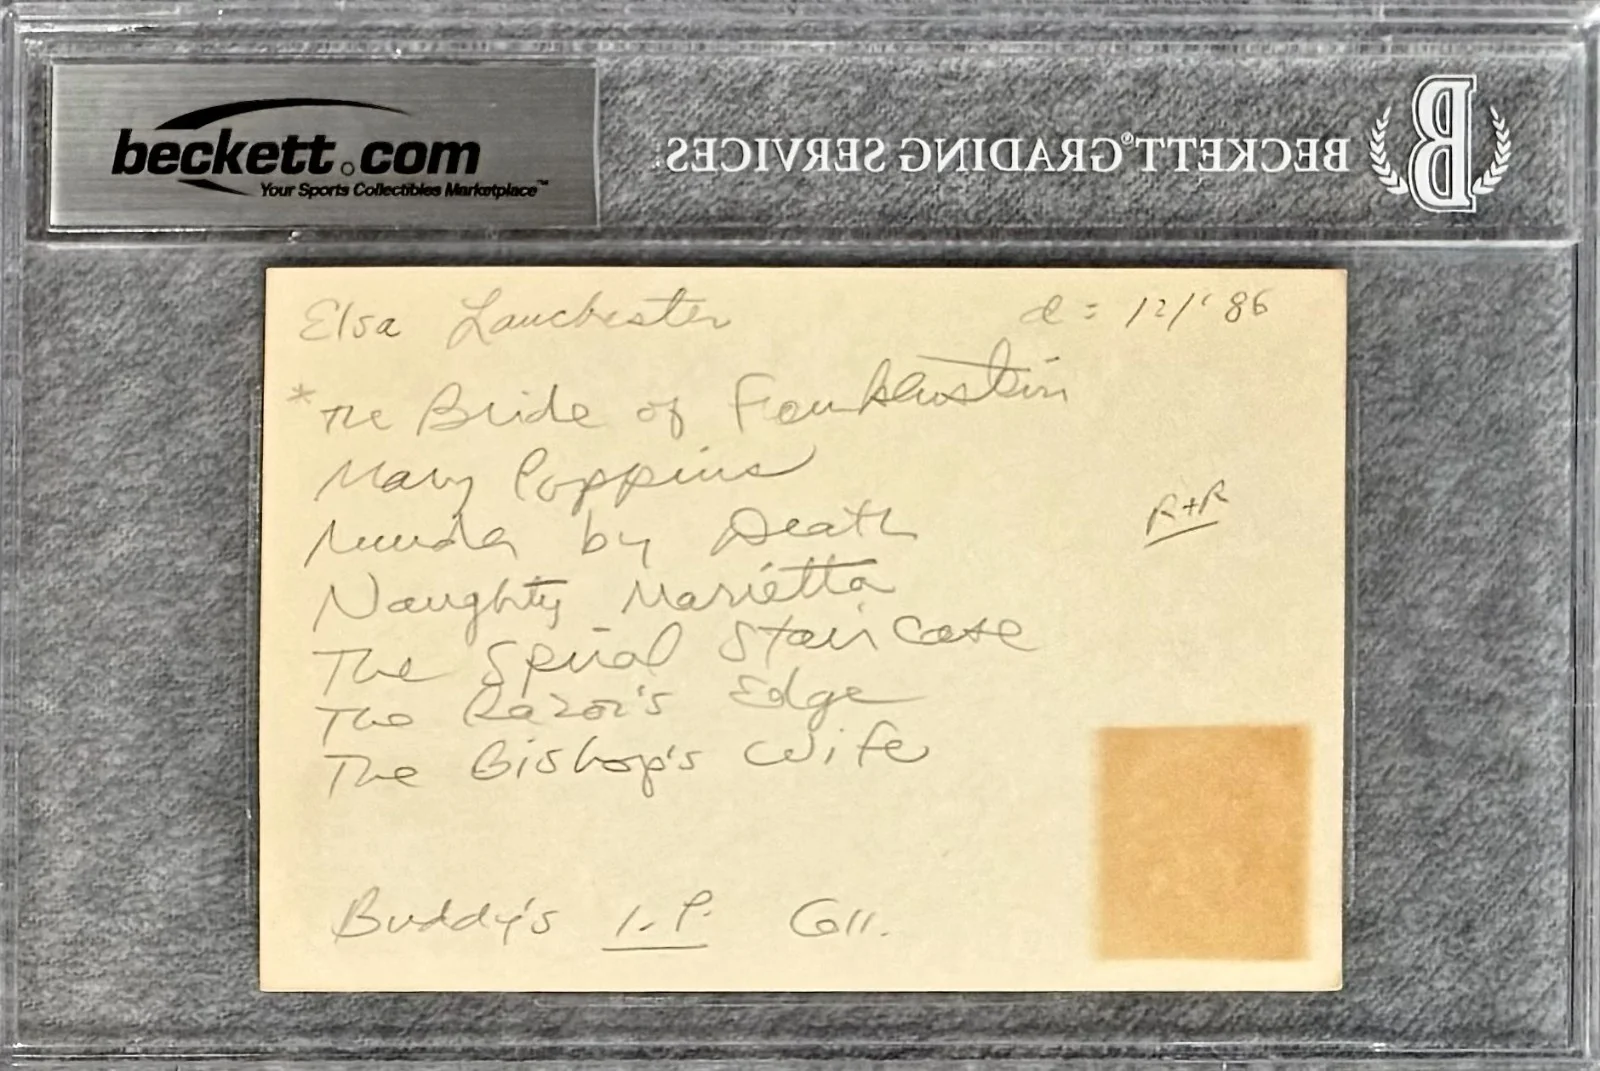 beckett.com
Your Sports Collectibles Marketplace™
BECKETT® GRADING SERVICES
B
Elsa Lanchester d = 12/'86
*The Bride of Frankenstein
Mary Poppins
Murder by Death
Naughty Marietta
The Spiral Stair Case
The Razor's Edge
The Bishop's Wife
R+R
Buddy's I.P. Coll.